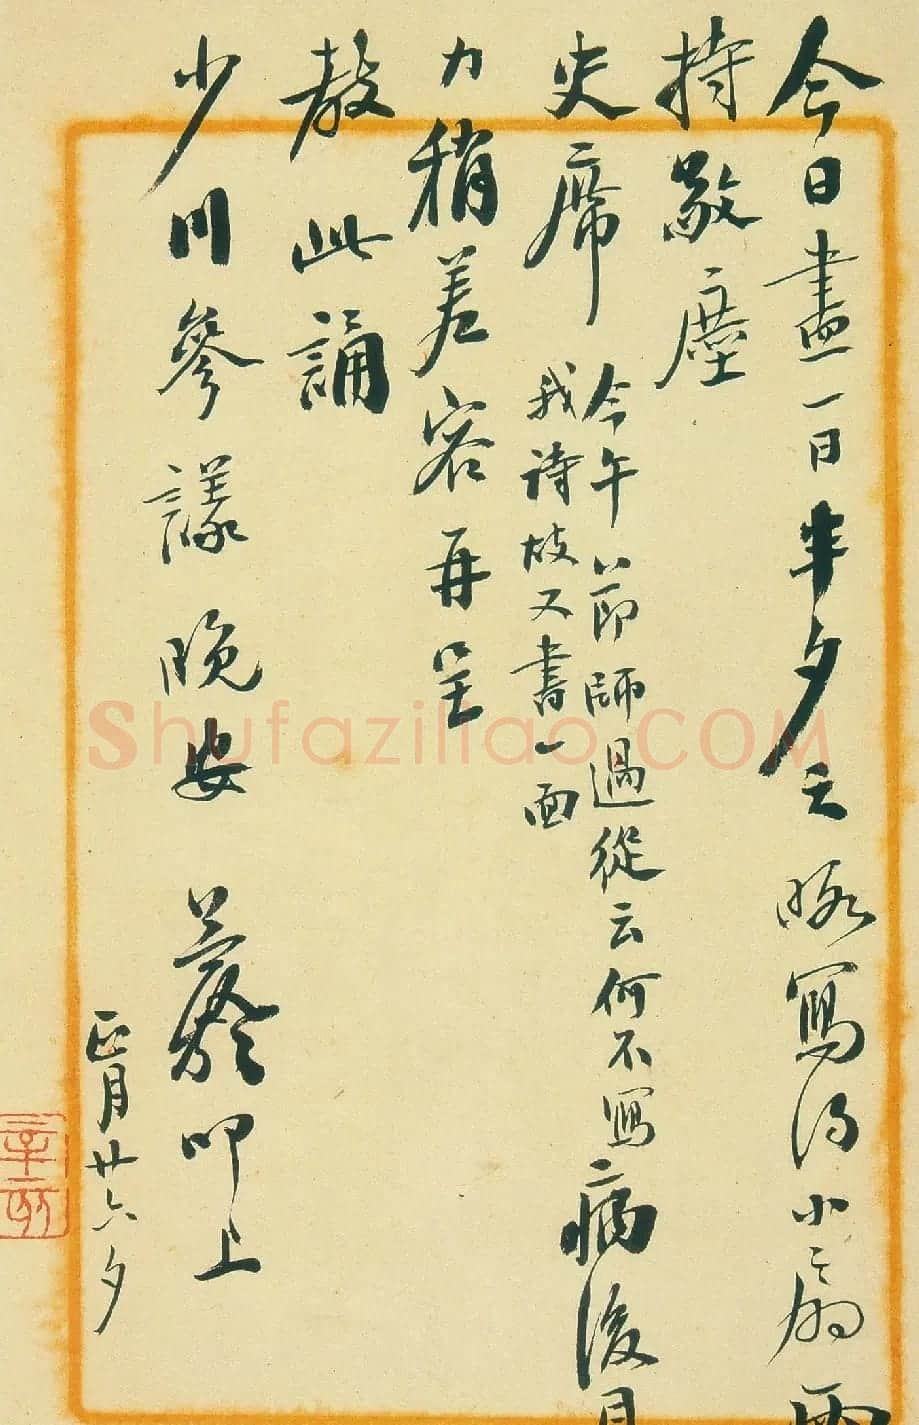 今日畫一日半夕之暇寫得小扇
持敬塵
史席
今午節師過從云何不寫
我詩故又書一面
病後目
力稍差容再呈
教此誦
少川參議晚安 叩上
正月廿六夕
Shufaziliao.COM